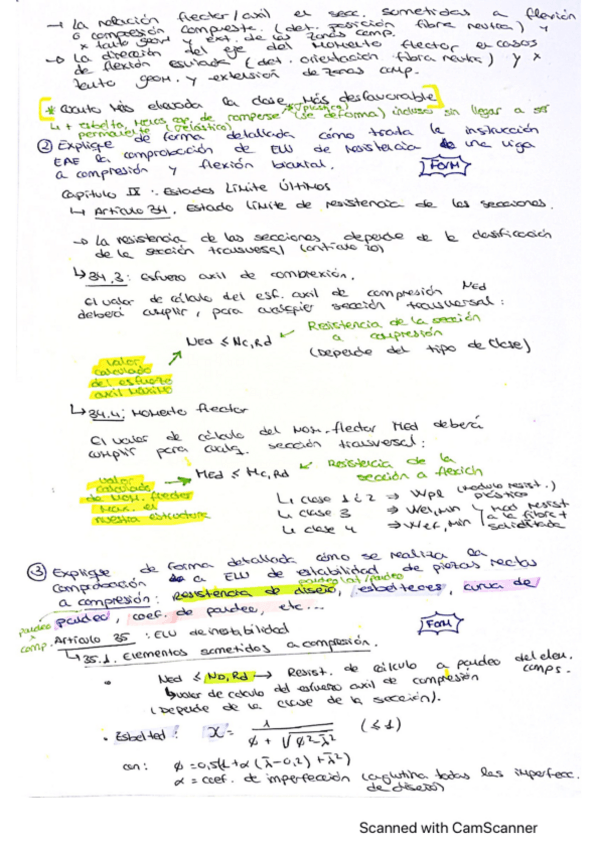 → La relación flector/axil en secc. sometidas a flexión
o compresión compuesta. (det. posición fibra neutra) y
x tanto geom ext. de las zonas comp.
→ La dirección del eje del momento flector en casos
de flexión esviada (det. orientación fibra neutra) y x
tanto geom. y extensión de zonas comp.
* Cuanto más elevada la clase, más desfavorable
↳ + esbelta, menos cap. de romperse (se deforma) incluso sin llegar a ser
plástica
permanente (elástica)
② Explique de forma detallada cómo trata la instrucción
EAE la comprobación de ELU de resistencia de una viga
a compresión y flexión biaxial.
FORM
Capítulo IX: Estados Límite Últimos
↳ Artículo 34. Estado límite de resistencia de las secciones.
→ La resistencia de las secciones depende de la clasificación
de la sección transversal (artículo 20)
↳ 34.3: Esfuerzo axil de comprexión.
El valor de cálculo del esf. axil de compresión Ned
deberá cumplir, para cualquier sección transversal:
Ned ≤ Nc,Rd ← Resistencia de la sección
a compresión
(Depende del tipo de clase)
valor
calculado
del esfuerzo
axil máximo
↳ 34.4: Momento flector
El valor de cálculo del mom. flector Med deberá
cumplir para cualq. sección transversal:
Med ≤ Mc,Rd ← Resistencia de la
sección a flexión
valor
calculado
de mom. flector
max. en
nuestra estructura
↳ clase 1 o 2 → Wpl (módulo resist. plástico)
↳ clase 3 → Wel,min
↳ clase 4 → Wef,min
mod resist
a la fibra +
solicitada
③ Explique de forma detallada cómo se realiza la
comprobación a ELU de estabilidad de piezas rectas
a compresión: resistencia de diseño, esbelteces, curva de
pandeo, coef. de pandeo, etc...
FORM
pandeo
x
comp.
Artículo 35: ELU de inestabilidad
↳ 35.1. Elementos sometidos a compresión.
• Ned ≤ Nb,Rd → Resist. de cálculo a pandeo del elem.
comprs.
valor de cálculo del esfuerzo axil de compresión
(Depende de la clase de la sección).
• Esbeltez: χ = 1 / (φ + √(φ² - λ̄²)) (≤ 1)
con: φ = 0,5(1 + α (λ̄ - 0,2) + λ̄²)
α = coef. de imperfección (aglutina todas las imperfecc.
de diseño)
Scanned with CamScanner